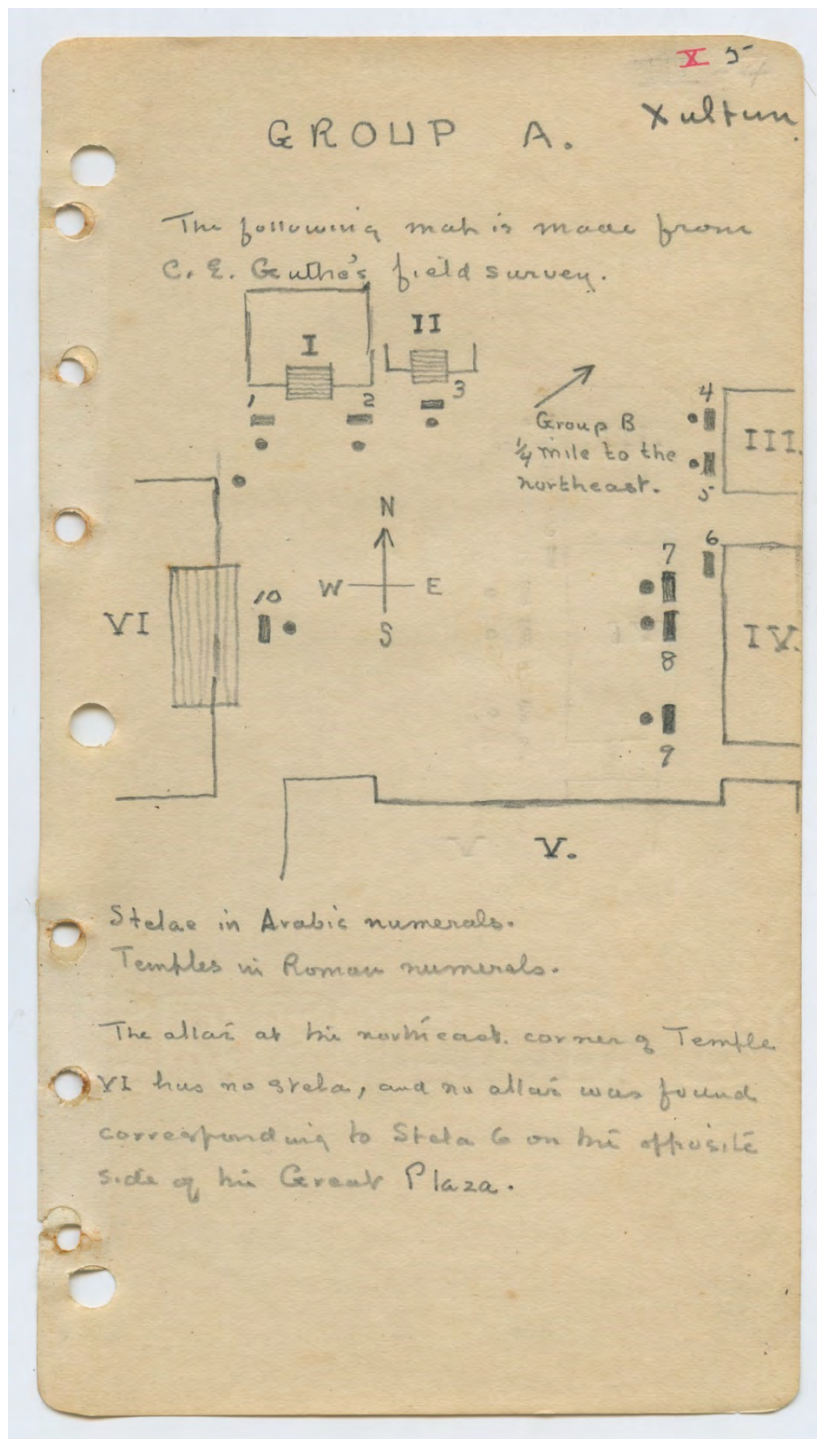 X 5
Xultun
GROUP A.
The following map is made from
C. E. Guthe's field survey.
I
II
1
2
3
4
Group B
III.
¼ mile to the
northeast.
5
N
6
7
W E
10
VI
S
IV.
8
9
V.
Stelae in Arabic numerals.
Temples in Roman numerals.
The altar at the northeast corner of Temple
VI has no stela, and no altar was found
corresponding to Stela 6 on the opposite
side of the Great Plaza.